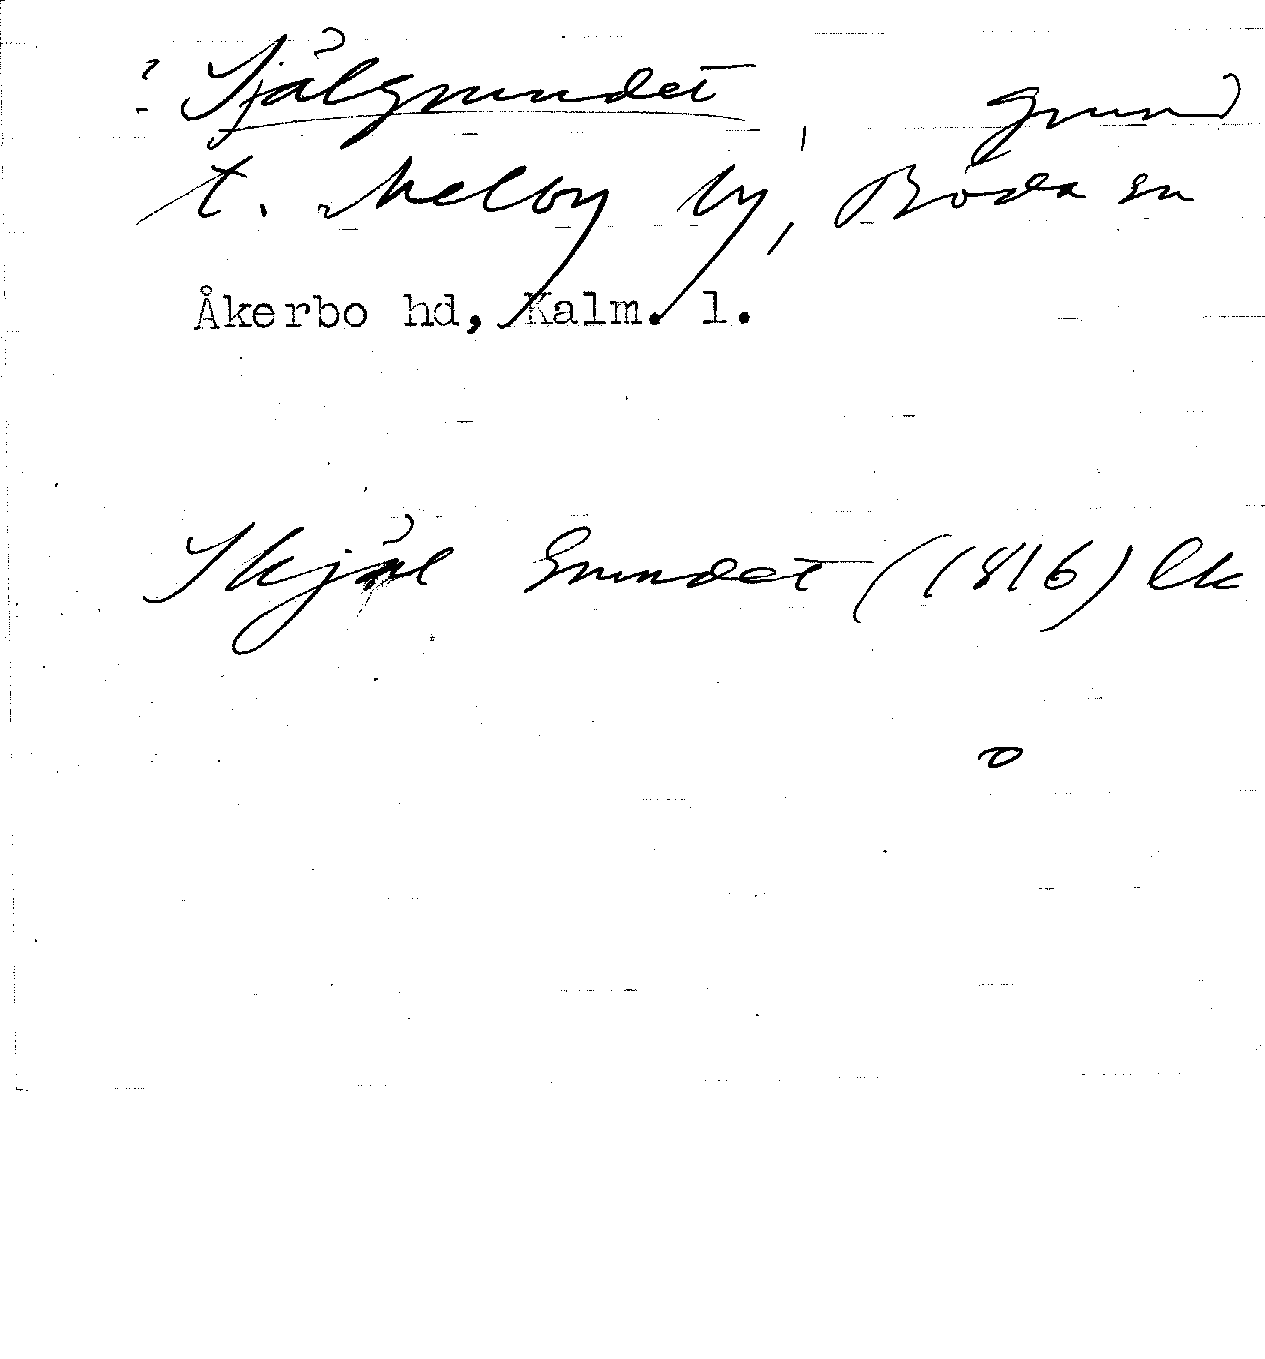 ? Sjålgrundet, grund
t. Melby by, Böda sn
Åkerbo hd, Kalm. l.
Skjål Grundet (1816) lk